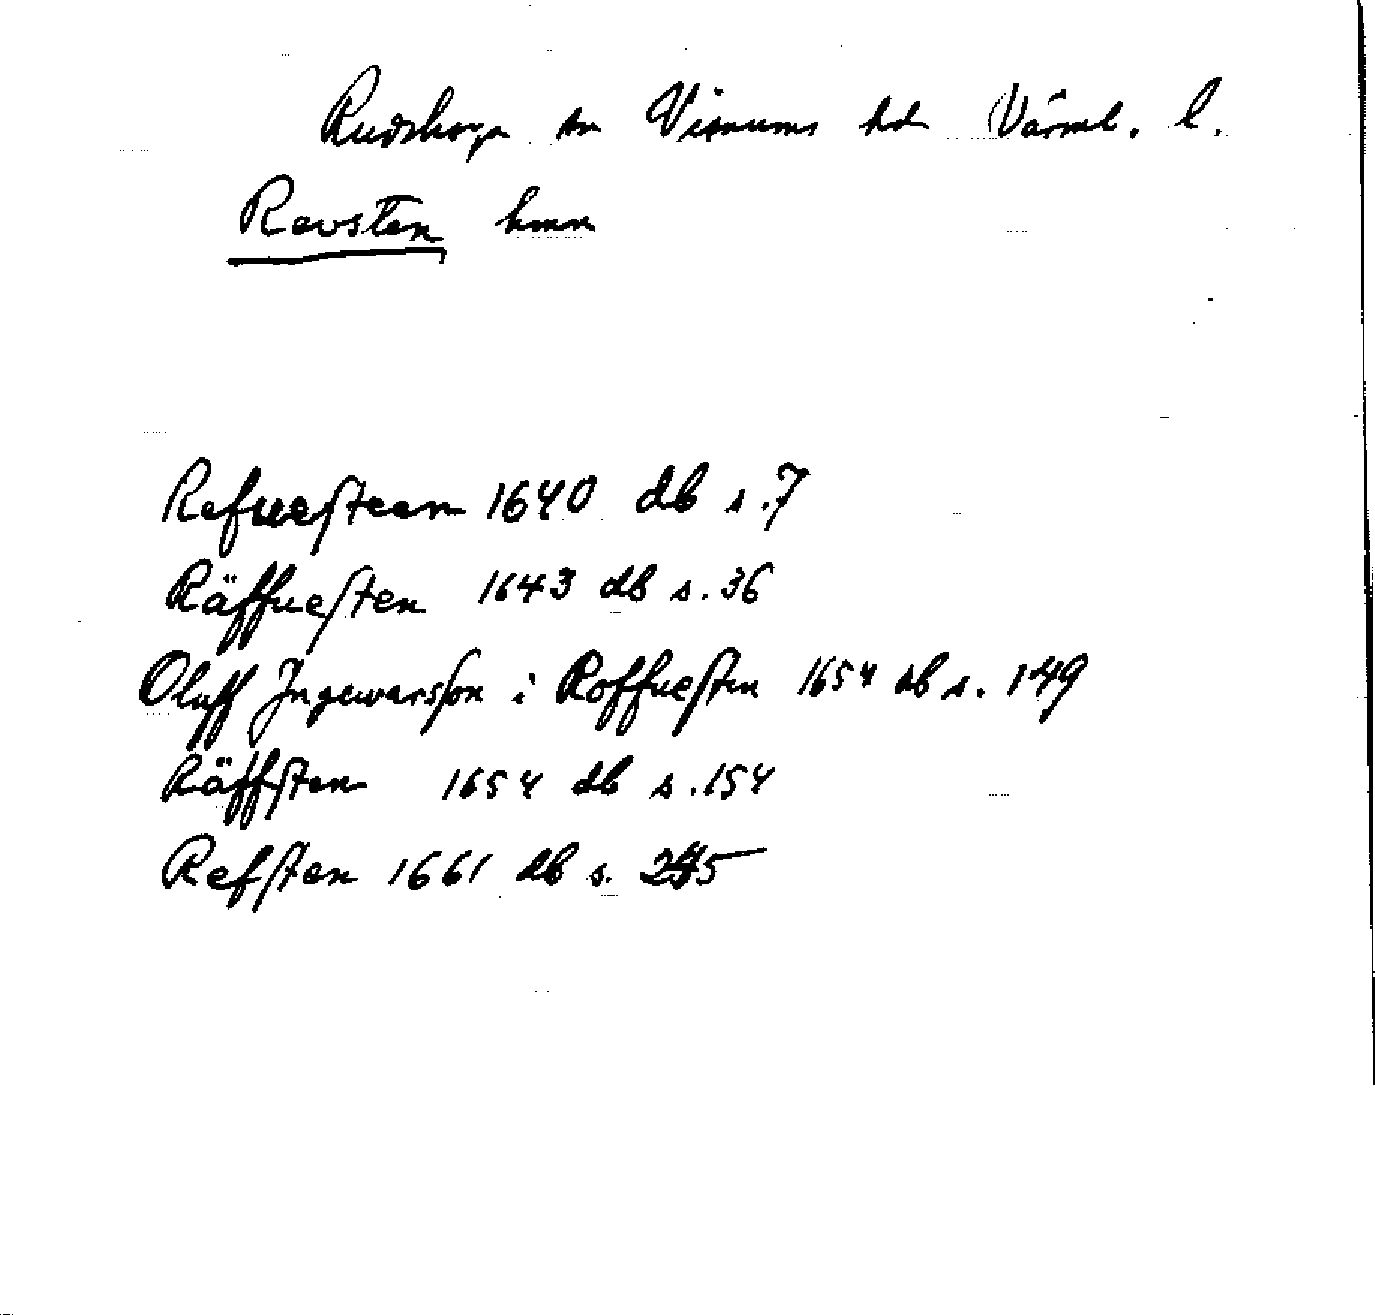 Rudskoga sn Visnums hd Värml. l.
Revsten hmn
Refuesteen 1640 db s. 7
Räffuesten 1643 db s. 36
Oluff Ingewarsson i Roffuesten 1654 db s. 149
Räffsten 1654 db s. 154
Refsten 1661 db s.